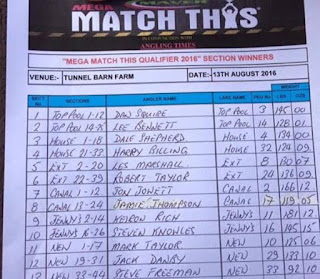 MAVER
MEGA
MATCH THIS
IN CONJUNCTION WITH
ANGLING TIMES
"MEGA MATCH THIS QUALIFIER 2016" SECTION WINNERS
VENUE:- TUNNEL BARN FARM DATE:-13TH AUGUST 2016
SECT'S SECTIONS ANGLER NAME LAKE NAME PEG No WEIGHT LBS OZS
1 TOP POOL 1-12 DAN SQUIRE TOP POOL 3 145 00
2 TOP POOL 14-25 LEE BENNETT TOP POOL 14 128 01
3 HOUSE 1-18 DALE SHEPHERD HOUSE 4 134 00
4 HOUSE 21-32 HARRY BILLING HOUSE 32 124 09
5 EXT 2-20 LES MARSHALL EXT 8 130 07
6 EXT 22-39 ROBERT TAYLOR EXT 24 136 09
7 CANAL 1-12 JON JOWETT CANAL 2 166 12
8 CANAL 13-24 JAMIE THOMPSON CANAL 17 119 05
9 JENNY'S 2-14 KEIRON RICH JENNYS 11 181 12
10 JENNYS 16-26 STEVEN KNOWLES JENNYS 16 145 15
11 NEW 1-17 MARK TAYLOR NEW 10 125 06
12 NEW 19-31 JACK DANBY NEW 29 133 10
NEW 33-44 STEVE FREEMAN NEW